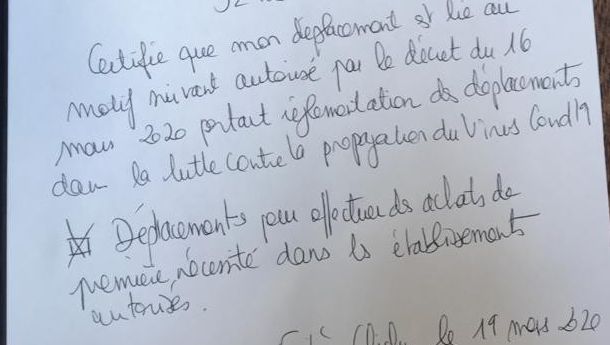 Certifie que mon déplacement est lié au
motif suivant autorisé par le décret du 16
mars 2020 portant réglementation des déplacements
dans la lutte contre la propagation du Virus Covid19
Déplacements pour effectuer des achats de
première nécessité dans les établissements
autorisés.
le 19 mars 2020